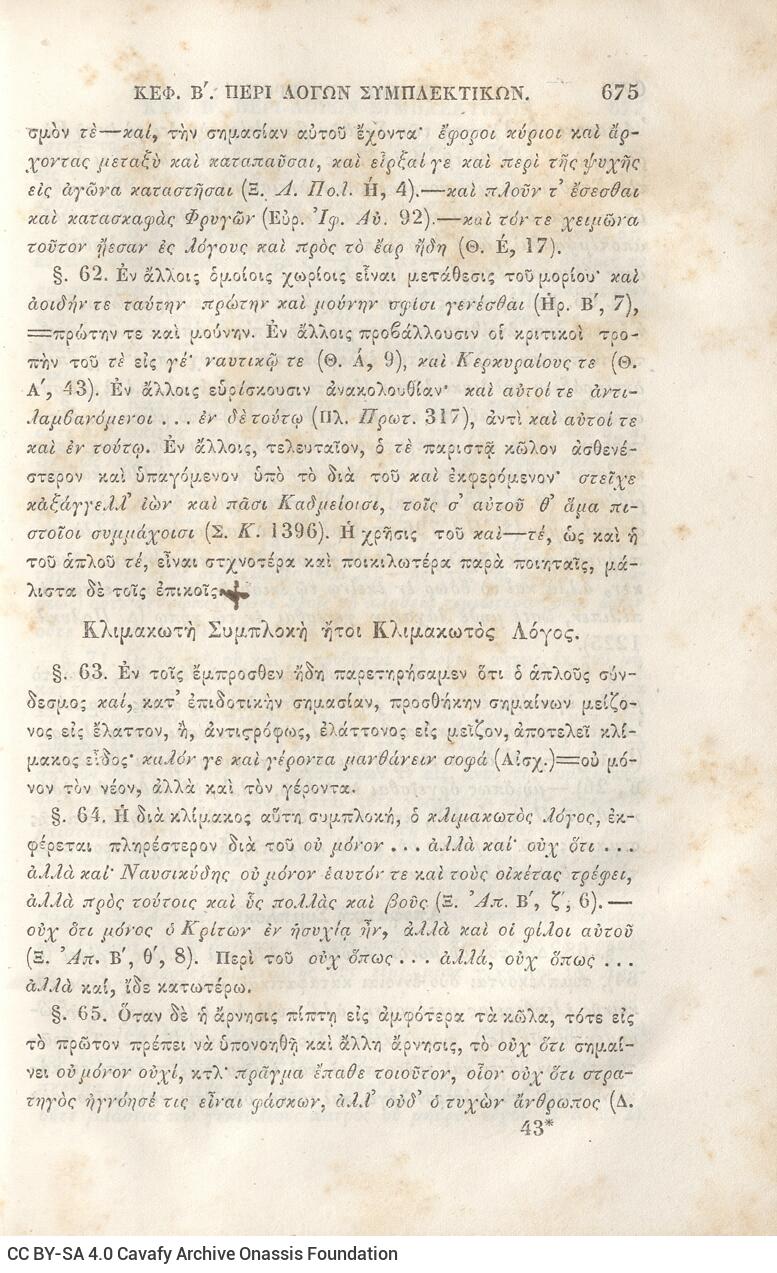 ΚΕΦ. Β′. ΠΕΡΙ ΛΟΓΩΝ ΣΥΜΠΛΕΚΤΙΚΩΝ. 675
σμὸν τὲ—καί, τὴν σημασίαν αὐτοῦ ἔχοντα· ἔφοροι κύριοι καὶ ἄρ-
χοντας μεταξὺ καὶ καταπαῦσαι, καὶ εἷρξαί γε καὶ περὶ τῆς ψυχῆς
εἰς ἀγῶνα καταστῆσαι (Ξ. Λ. Πολ. Ή, 4).—καὶ πλοῦν τ’ ἔσεσθαι
καὶ κατασκαφὰς Φρυγῶν (Εὐρ. Ἰφ. Αὐ. 92).—καὶ τόν τε χειμῶνα
τοῦτον ᾔεσαν ἐς λόγους καὶ πρὸς τὸ ἔαρ ἤδη (Θ. Έ, 17).
§. 62. Ἐν ἄλλοις ὁμοίοις χωρίοις εἶναι μετάθεσις τοῦ μορίου· καὶ
ἀοιδήν τε ταύτην πρώτην καὶ μούνην σφίσι γενέσθαι (Ἡρ. Β′, 7),
=πρώτην τε καὶ μούνην. Ἐν ἄλλοις προβάλλουσιν οἱ κριτικοὶ τρο-
πὴν τοῦ τὲ εἰς γέ· ναυτικῷ τε (Θ. Ά, 9), καὶ Κερκυραίους τε (Θ.
Α′, 43). Ἐν ἄλλοις εὑρίσκουσιν ἀνακολουθίαν· καὶ αὐτοί τε ἀντι-
λαμβανόμενοι . . . ἐν δὲ τούτῳ (Πλ. Πρωτ. 317), ἀντὶ καὶ αὐτοί τε
καὶ ἐν τούτῳ. Ἐν ἄλλοις, τελευταῖον, ὁ τὲ παριστᾷ κῶλον ἀσθενέ-
στερον καὶ ὑπαγόμενον ὑπὸ τὸ διὰ τοῦ καὶ ἐκφερόμενον· στεῖχε
κἀξάγγελλ’ ἰὼν καὶ πᾶσι Καδμείοισι, τοῖς σ’ αὐτοῦ θ’ ἅμα πι-
στοῖσι συμμάχοισι (Σ. Κ. 1396). Ἡ χρῆσις τοῦ καὶ—τέ, ὡς καὶ ἡ
τοῦ ἁπλοῦ τέ, εἶναι συχνοτέρα καὶ ποικιλωτέρα παρὰ ποιηταῖς, μά-
λιστα δὲ τοῖς ἐπικοῖς
Κλιμακωτὴ Συμπλοκὴ ἤτοι Κλιμακωτὸς Λόγος.
§. 63. Ἐν τοῖς ἔμπροσθεν ἤδη παρετηρήσαμεν ὅτι ὁ ἁπλοῦς σύν-
δεσμος καί, κατ’ ἐπιδοτικὴν σημασίαν, προσθήκην σημαίνων μείζο-
νος εἰς ἔλαττον, ἢ, ἀντιστρόφως, ἐλάττονος εἰς μεῖζον, ἀποτελεῖ κλί-
μακος εἶδος· καλόν γε καὶ γέροντα μανθάνειν σοφά (Αἰσχ.)=οὐ μό-
νον τὸν νέον, ἀλλὰ καὶ τὸν γέροντα.
§. 64. Ἡ διὰ κλίμακος αὕτη συμπλοκή, ὁ κλιμακωτὸς λόγος, ἐκ-
φέρεται πληρέστερον διὰ τοῦ οὐ μόνον . . . ἀλλὰ καί· οὐχ ὅτι . . .
ἀλλὰ καί· Ναυσικύδης οὐ μόνον ἑαυτόν τε καὶ τοὺς οἰκέτας τρέφει,
ἀλλὰ πρὸς τούτοις καὶ ὗς πολλὰς καὶ βοῦς (Ξ. Ἀπ. Β′, ζ′, 6).—
οὐχ ὅτι μόνος ὁ Κρίτων ἐν ἡσυχίᾳ ἦν, ἀλλὰ καὶ οἱ φίλοι αὐτοῦ
(Ξ. Ἀπ. Β′, θ′, 8). Περὶ τοῦ οὐχ ὅπως . . . ἀλλά, οὐχ ὅπως . . .
ἀλλὰ καί, ἴδε κατωτέρω.
§. 65. Ὅταν δὲ ἡ ἄρνησις πίπτῃ εἰς ἀμφότερα τὰ κῶλα, τότε εἰς
τὸ πρῶτον πρέπει νὰ ὑπονοηθῇ καὶ ἄλλη ἄρνησις, τὸ οὐχ ὅτι σημαί-
νει οὐ μόνον οὐχί, κτλ· πρᾶγμα ἔπαθε τοιοῦτον, οἷον οὐχ ὅτι στρα-
τηγὸς ἠγνόησέ τις εἶναι φάσκων, ἀλλ’ οὐδ’ ὁ τυχὼν ἄνθρωπος (Δ.
43*
CC BY-SA 4.0 Cavafy Archive Onassis Foundation